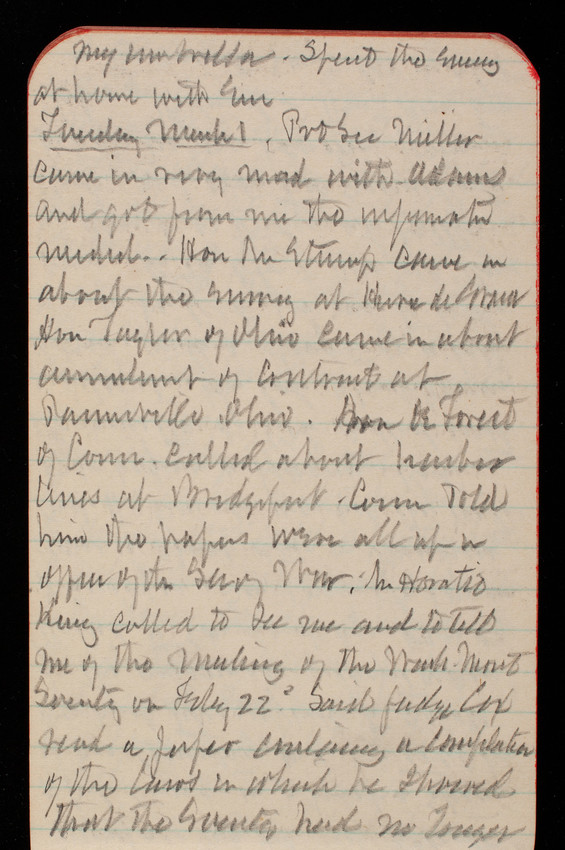 my umbrella. Spent the evening
at home with Em
Tuesday March 1, Prof Geo Miller
came in very mad with Adams
and got from me the information
needed.. Hon Mr Stump came in
about the survey at Havre de Grace
Hon Taylor of Ohio came in about
annulment of Contract at
Painesville Ohio. Hon De Forest
of Conn. called about harbor
lines at Bridgeport Conn Told
him the papers were all up in
office of the Secy War. Mr Horatio
King called to see me and to tell
me of the meeting of the Wash. Mont
Society on Feby 22d Said Judge Cox
read a paper containing a compilation
of the laws in which he showed
that the Society had no longer